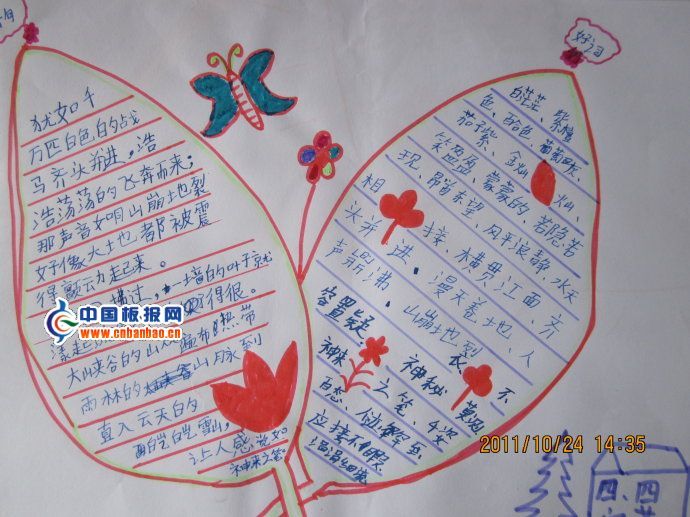 好词
犹如千
万匹白色的战
马齐头并进，浩
浩荡荡的飞奔而来；
那声音如同山崩地裂
好像大地也都被震
得颤动起来。
一墙的叶子就
漾起
得很。
大峡谷的山
遍布热带
雨林的山脉到
直入云天的
皑皑雪山，
让人感觉如
神来之笔。
白茫茫、紫檀
色、鸽色、葡萄灰、
茄子紫、金灿灿、
笑盈盈、蒙蒙的、若隐若
现、昂首东望、风平浪静、水天
相接、横贯江面、齐
头并进、漫天卷地、人
声鼎沸、山崩地裂、
容置疑、
神来之笔、神秘莫测、
应接不暇
中国板报网
www.cnbanbao.cn
2011/10/24 14:35
四、四